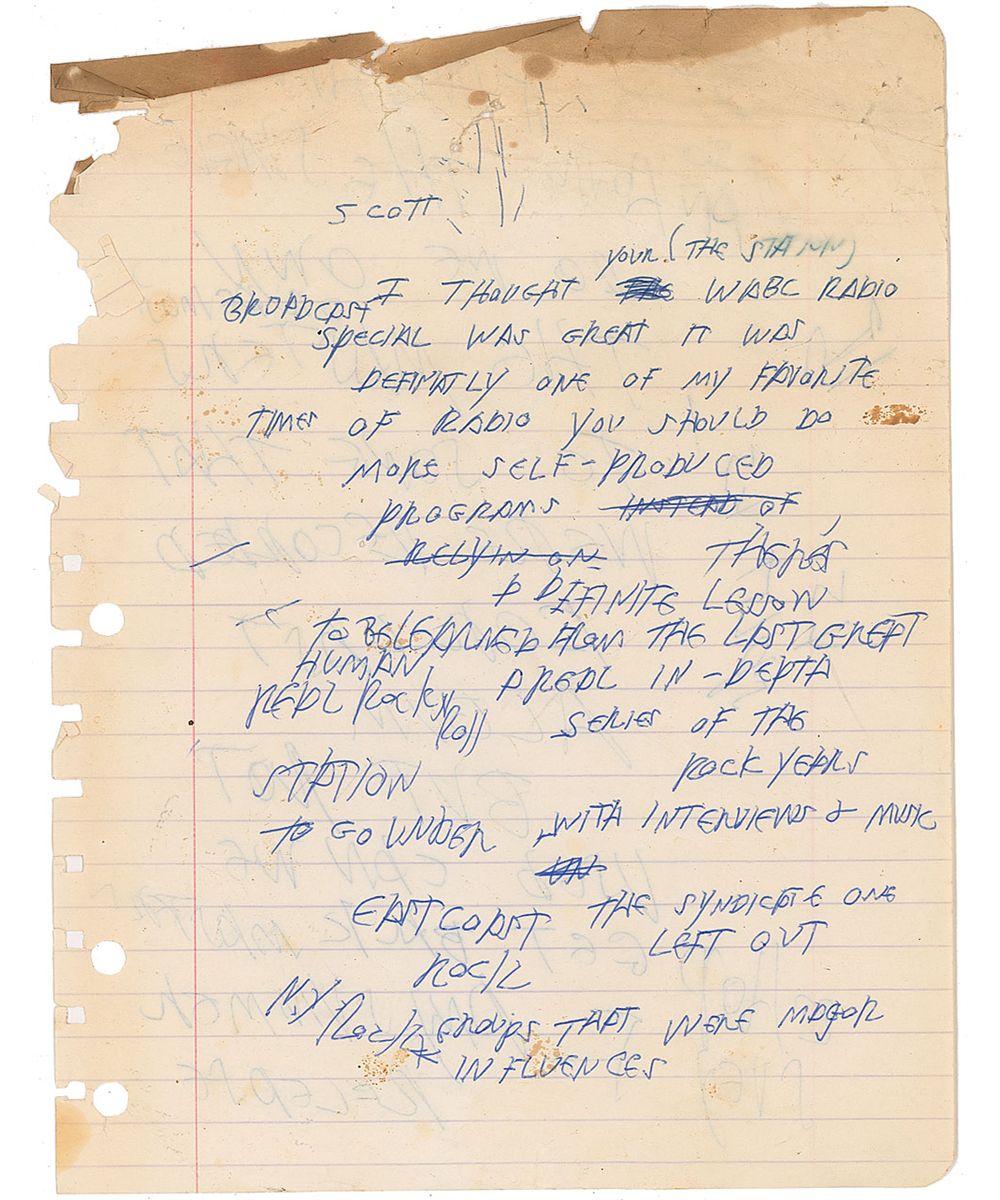 SCOTT
your (THE
I THOUGHT WABC RADIO
BROADCAST
SPECIAL WAS GREAT IT WAS
DEFINATLY ONE OF MY FAVORITE
TIMES OF RADIO YOU SHOULD DO
MORE SELF-PRODUCED
PROGRAMS INSTEAD OF
RELYIN ON THERES
A DEFINITE LESSON
TO BE LEARNED FROM THE LAST GREAT
HUMAN
REAL Rock n A REAL IN-DEPTH
Roll SERIES OF THE
STATION ROCK YEARS
TO GO UNDER, WITH INTERVIEWS & MUSIC
EAST COAST THE SYNDICATE ONE
LEFT OUT
ROCK
N.Y.
Rock GROUPS THAT WERE MAGOR
* INFLUENCES